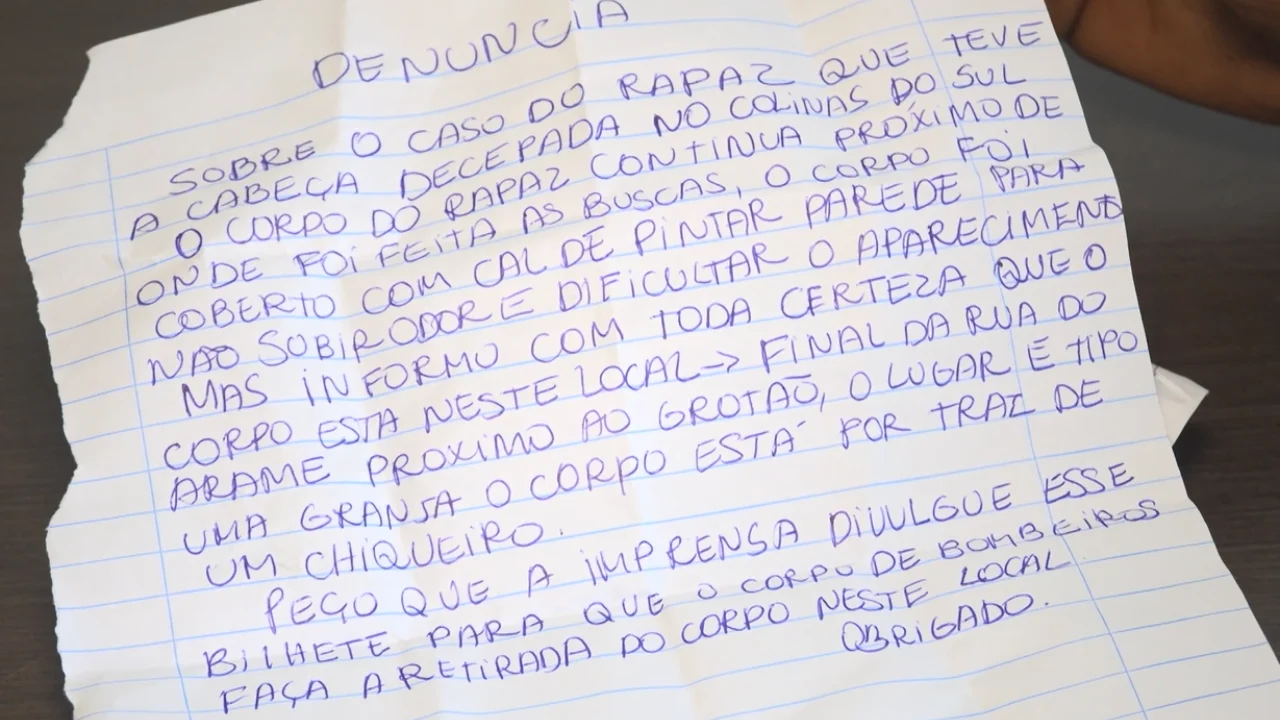 DENUNCIA
SOBRE O CASO DO RAPAZ QUE TEVE
A CABEÇA DECEPADA NO COLINAS DO SUL
O CORPO DO RAPAZ CONTINUA PRÓXIMO DE
ONDE FOI FEITA AS BUSCAS, O CORPO FOI
COBERTO COM CAL DE PINTAR PAREDE PARA
NAO SUBIR ODOR E DIFICULTAR O APARECIMENTO
MAS INFORMO COM TODA CERTEZA QUE O
CORPO ESTA NESTE LOCAL -> FINAL DA RUA DO
ARAME PROXIMO AO GROTÃO, O LUGAR E TIPO
UMA GRANSA O CORPO ESTÁ POR TRAZ DE
UM CHIQUEIRO.
PEÇO QUE A IMPRENSA DIVULGUE ESSE
BILHETE PARA QUE O CORPO DE BOMBEIROS
FAÇA A RETIRADA DO CORPO NESTE LOCAL
OBRIGADO.